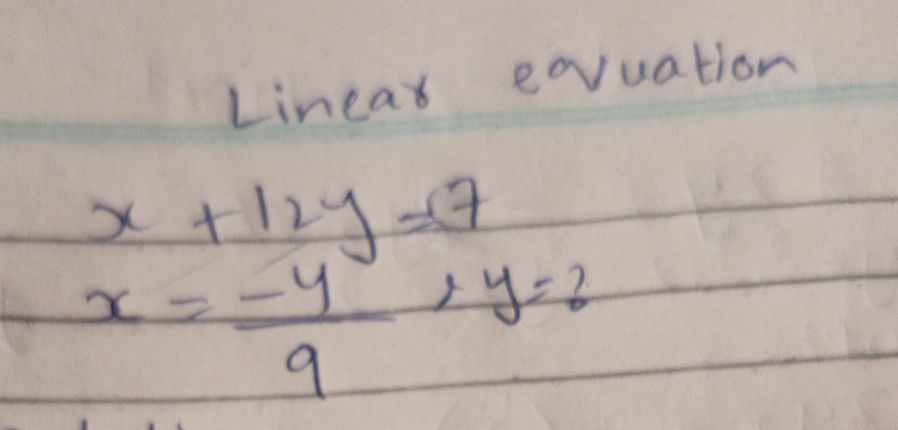 Linear eqvuation
x + 12y = 7
x = -y/9 , y = ?